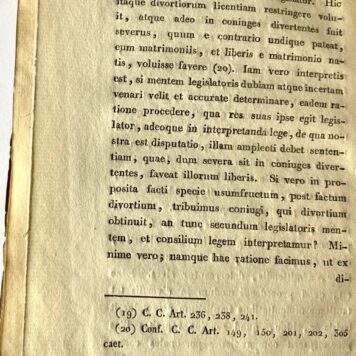 Hic
itaque divortiorum licentiam restringere volu-
it, atque adeo in coniuges divertentes fuit
severus, quum e contrario undique pateat,
eum matrimoniis, et liberis e matrimonio na-
tis, voluisse favere (20). Iam vero interpretis
est, si mentem legislatoris dubiam atque incertam
venari velit et accurate determinare, eadem ra-
tione procedere, qua res suas ipse egit legis-
lator, adeoque in interpretanda lege, de qua no-
stra est disputatio, illam amplecti debet senten-
tiam, quae, dum severa sit in coniuges diver-
tentes, faveat illorum liberis. Si vero in pro-
posita facti specie usumfructum, post factum
divortium, tribuimus coniugi, qui divortium
obtinuit, an tunc secundum legislatoris men-
tem, et consilium legem interpretamur? Mi-
nime vero; namque hac ratione facimus, ut ex
di-
(19) C. C. Art. 236, 238, 241.
(20) Conf. C. C. Art. 149, 150, 201, 202, 305
caet.